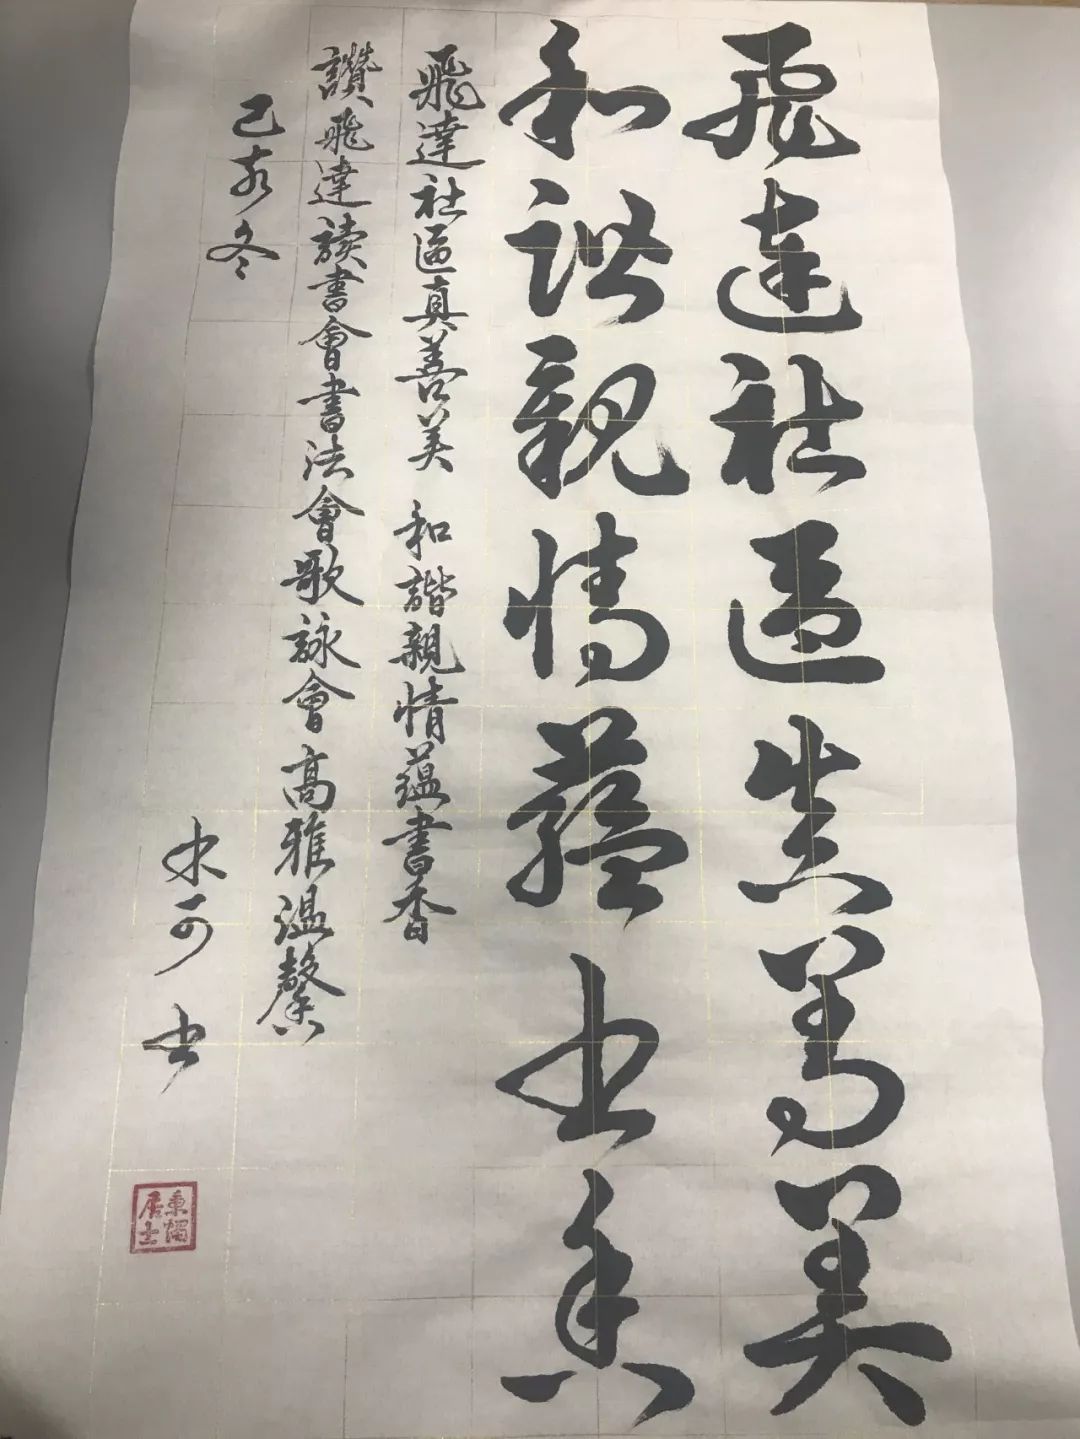 飛達社區真善美
和諧親情蘊書香
飛達社區真善美 和諧親情蘊書香
讚飛達讀書會書法會歌詠會高雅溫馨
己亥冬
水可 書
居士